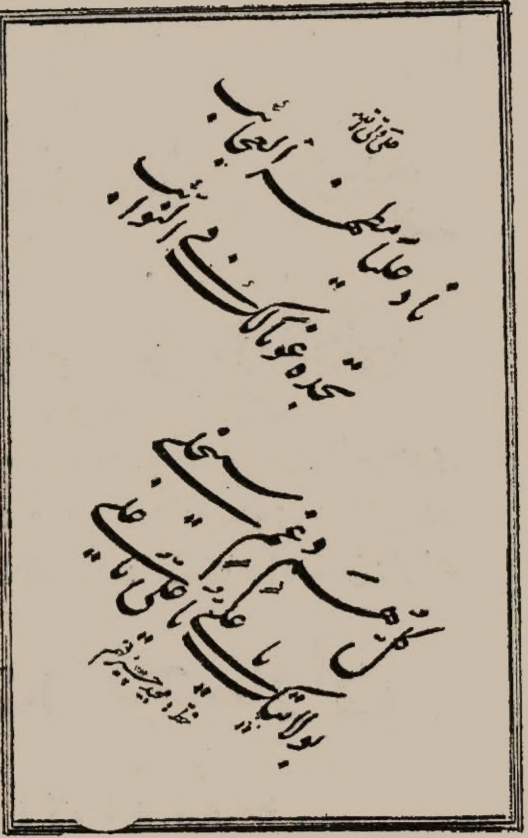 ناد علیاً مظهر العجائب
تجده عوناً لک فی النوائب
کلّ همّ و غمّ سینجلی
بولایتک یا علیّ یا علیّ یا علی